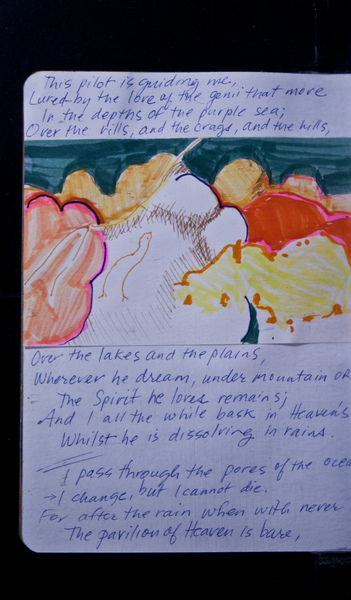 This pilot is guiding me,
Lured by the love of the genii that move
In the depths of the purple sea;
Over the rills, and the crags, and the hills,
Over the lakes and the plains,
Wherever he dream, under mountain or
The Spirit he loves remains;
And I all the while bask in Heaven's
Whilst he is dissolving in rains.
I pass through the pores of the ocea
→ I change, but I cannot die.
For after the rain when with never
The pavilion of Heaven is bare,